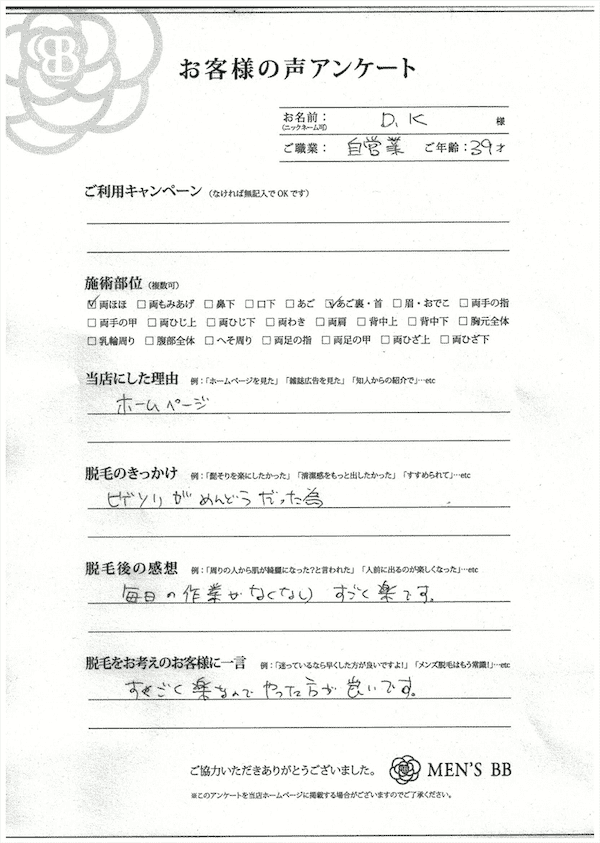 BB
お客様の声アンケート
お名前：(ニックネーム可) D.K 様
ご職業： 自営業 ご年齢：39才
ご利用キャンペーン （なければ無記入でOKです）
施術部位 （複数可）
☑両ほほ □両もみあげ □鼻下 □口下 □あご ☑あご裏・首 □眉・おでこ □両手の指
□両手の甲 □両ひじ上 □両ひじ下 □両わき □両肩 □背中上 □背中下 □胸元全体
□乳輪周り □腹部全体 □へそ周り □両足の指 □両足の甲 □両ひざ上 □両ひざ下
当店にした理由 例：「ホームページを見た」「雑誌広告を見た」「知人からの紹介で」…etc
ホームページ
脱毛のきっかけ 例：「髭そりを楽にしたかった」「清潔感をもっと出したかった」「すすめられて」…etc
ヒゲソリがめんどうだった為
脱毛後の感想 例：「周りの人から肌が綺麗になった？と言われた」「人前に出るのが楽しくなった」…etc
毎日の作業がなくなり すごく楽です。
脱毛をお考えのお客様に一言 例：「迷っているなら早くした方が良いですよ！」「メンズ脱毛はもう常識！」…etc
すごく楽なんでやった方が良いです。
ご協力いただきありがとうございました。 MEN'S BB
※このアンケートを当店ホームページに掲載する場合がございますのでご了承ください。